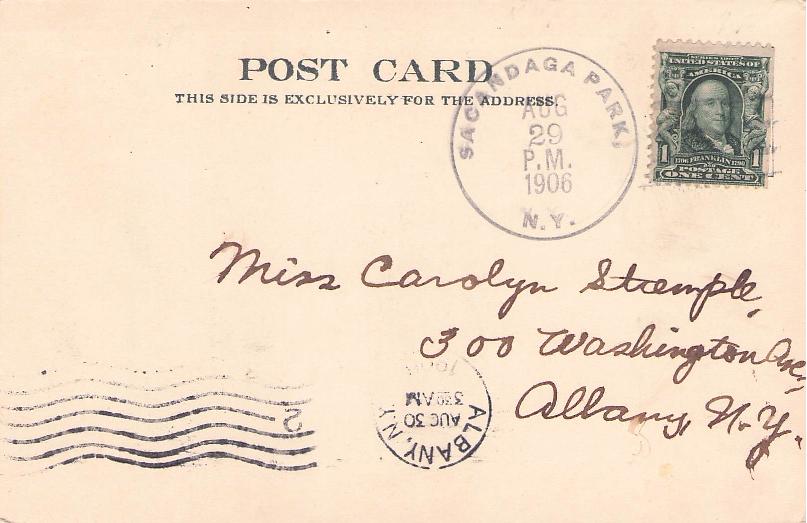 POST CARD
THIS SIDE IS EXCLUSIVELY FOR THE ADDRESS.
SACANDAGA PARK,
AUG
29
P.M.
1906
N.Y.
SERIES 1902
UNITED STATES OF
AMERICA
1 1706 FRANKLIN 1790 1
POSTAGE
ONE CENT
Miss Carolyn Stemple,
300 Washington Ave,
Albany, N.Y.
ALBANY, N.Y.
AUG 30
330 AM
2